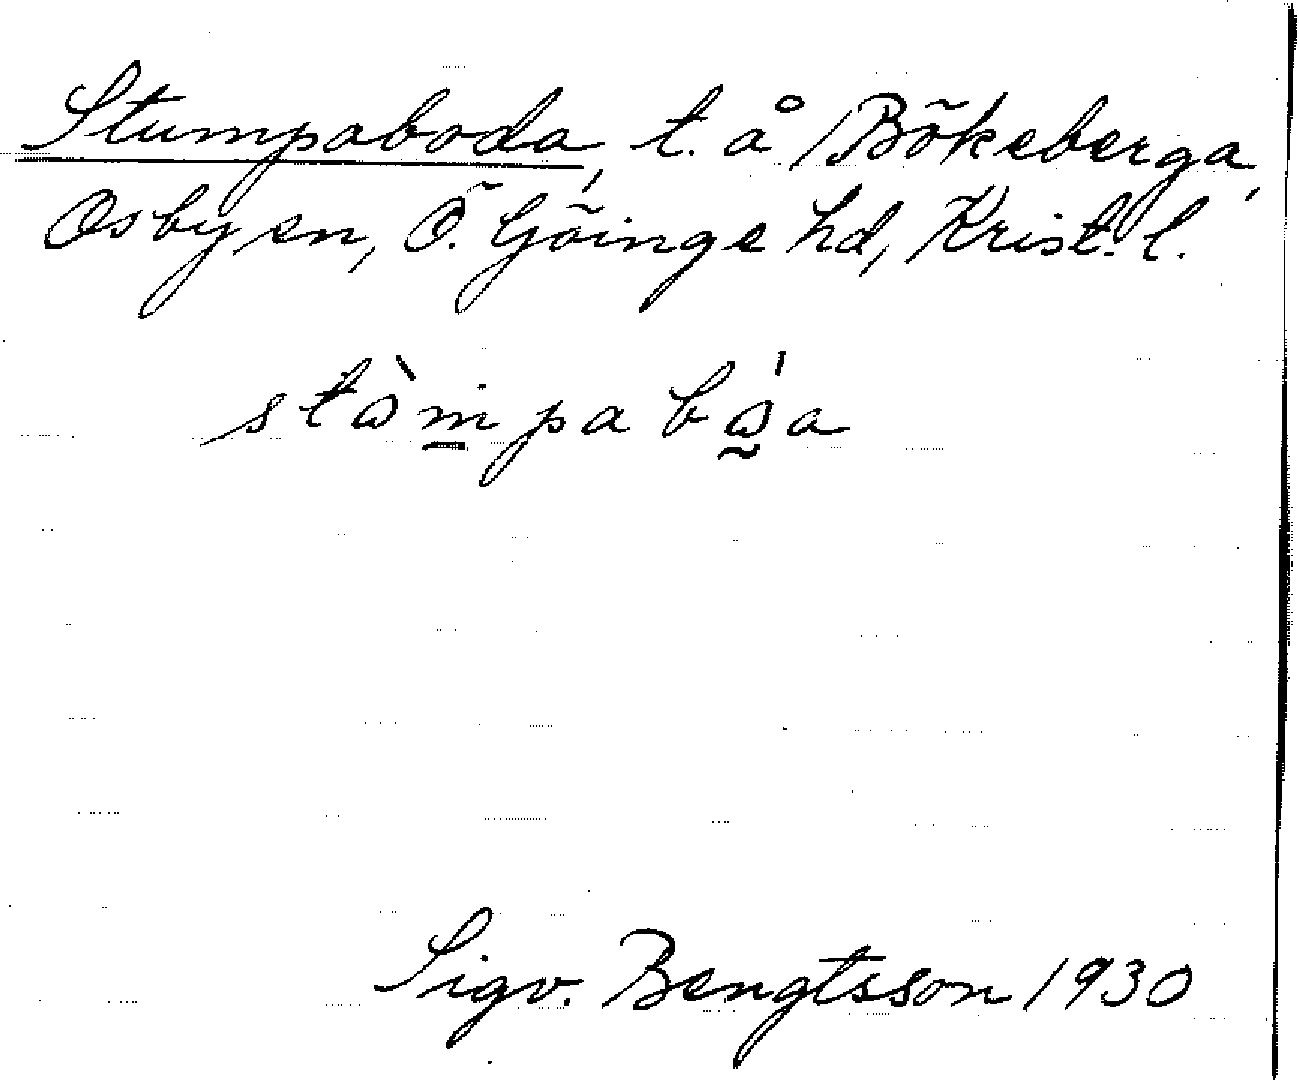 Stumpaboda, t. å Bökeberga,
Osby sn, Ö. Göinge hd, Krist. l.
stòmpa bóa
Sigv. Bengtsson 1930